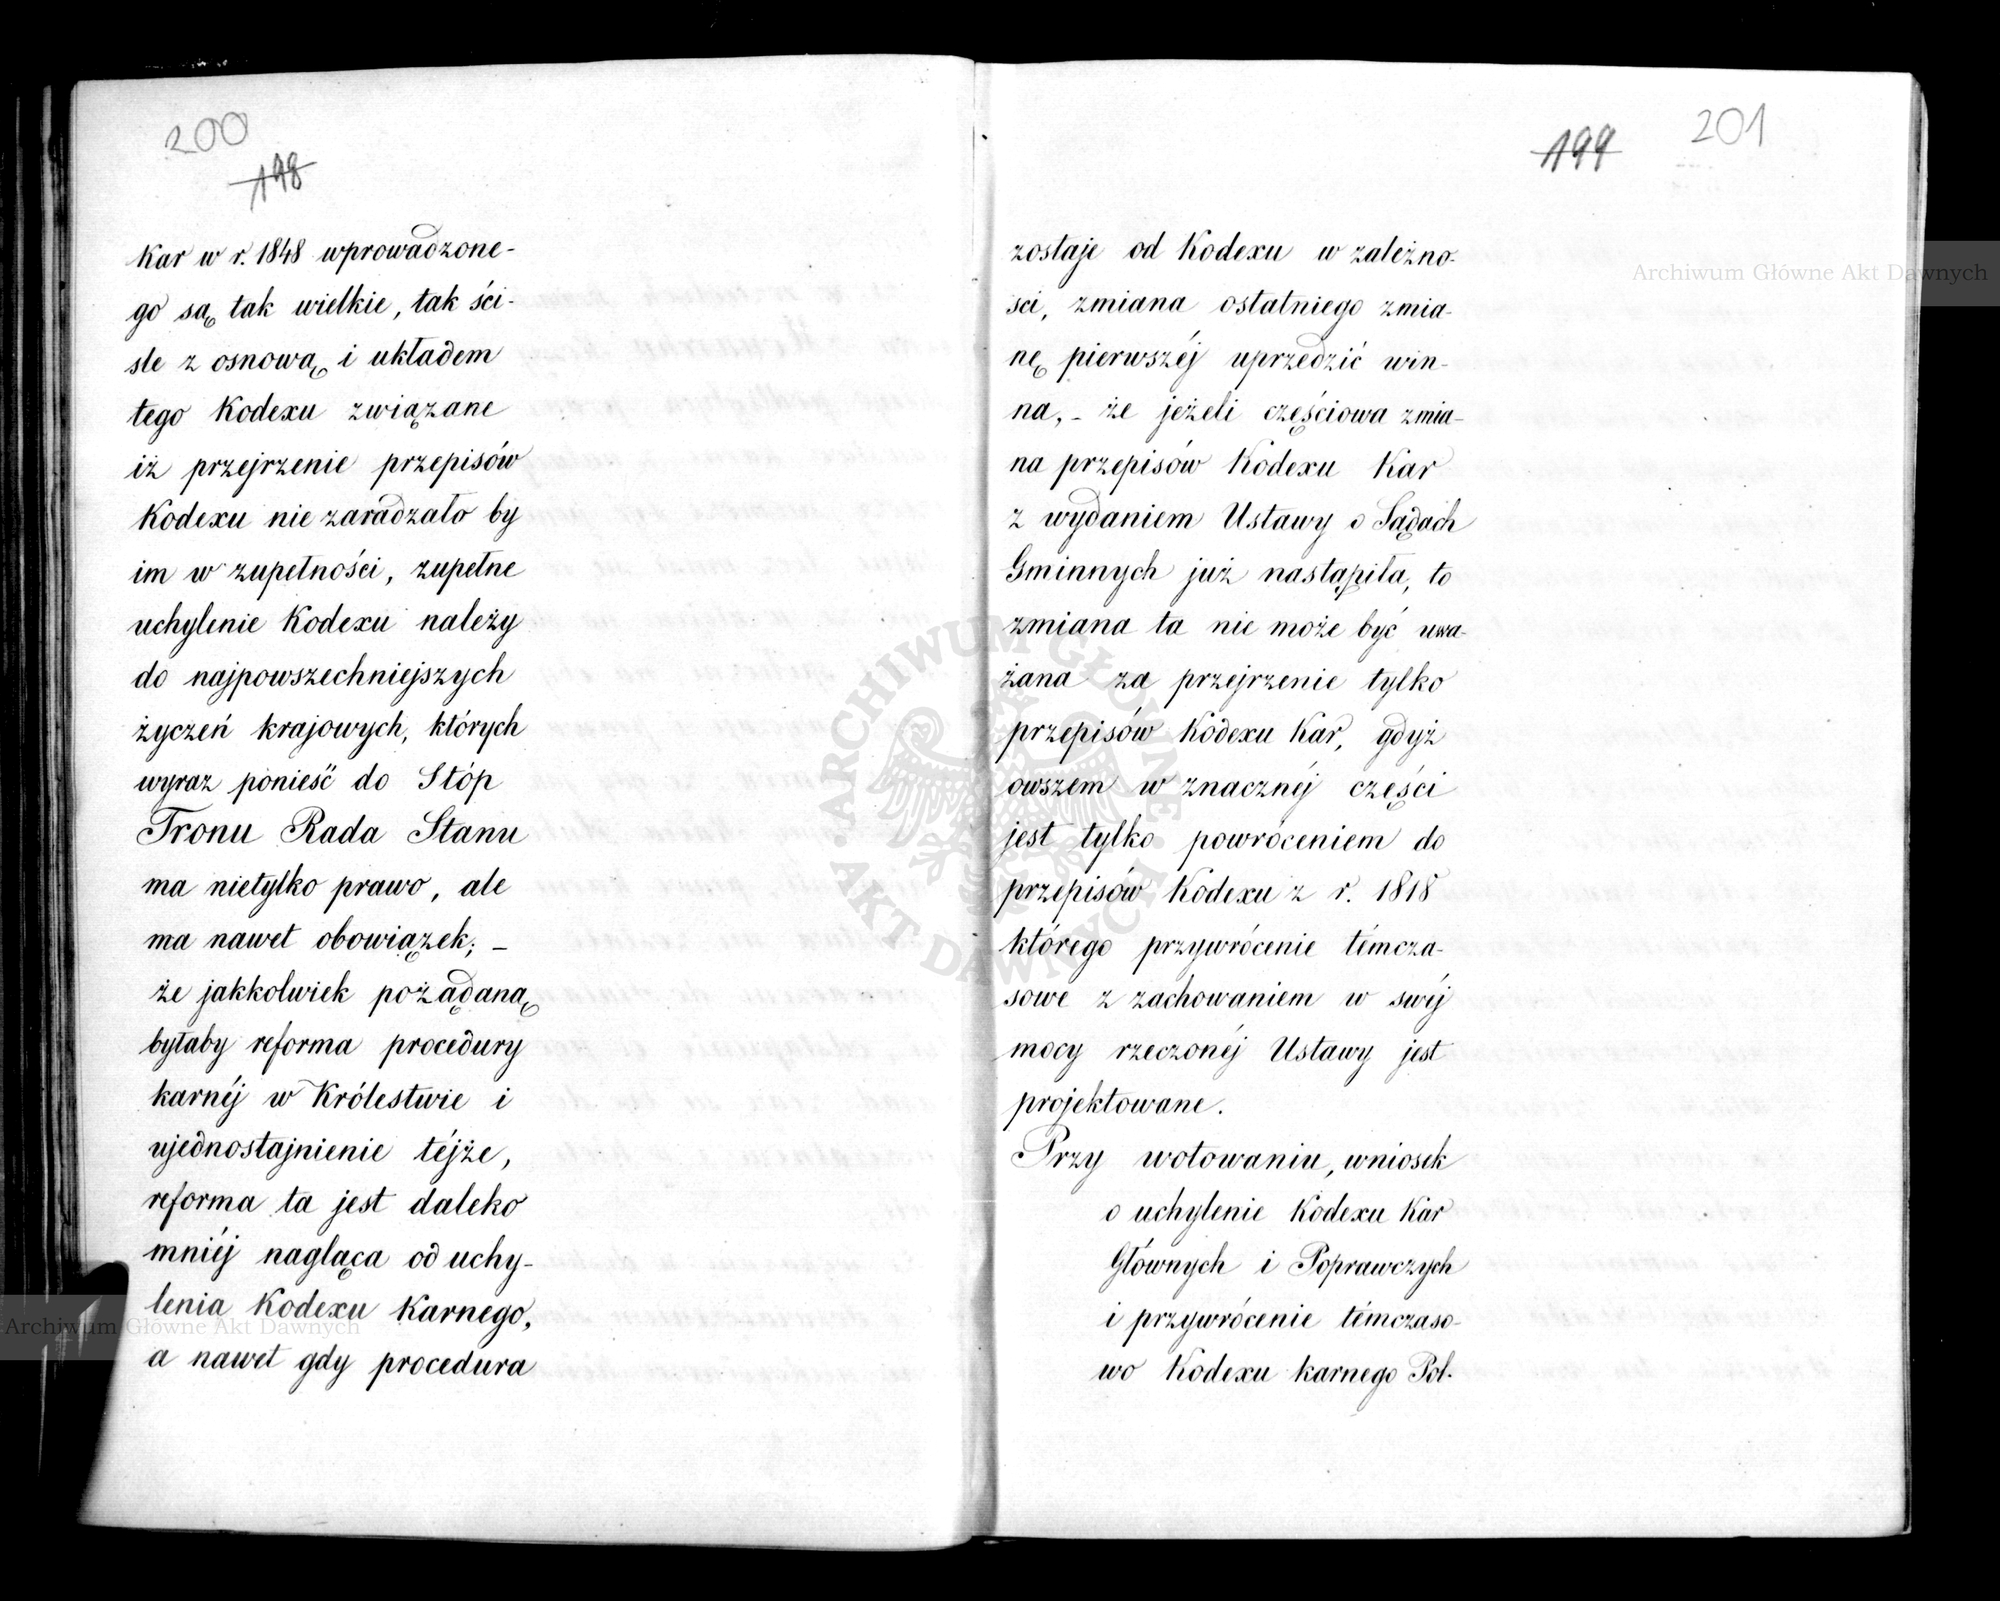 200
198
Kar w r. 1848 wprowadzone-
go są tak wielkie, tak ści-
śle z osnową i układem
tego Kodexu związane
iż przejrzenie przepisów
Kodexu nie zaradzało by
im w zupełności, zupełne
uchylenie Kodexu należy
do najpowszechniejszych
życzeń krajowych, których
wyraz ponieść do Stóp
Tronu Rada Stanu
ma nietylko prawo, ale
ma nawet obowiązek; –
że jakkolwiek pożądaną
byłaby reforma procedury
karnéj w Królestwie i
ujednostajnienie téjże,
reforma ta jest daleko
mniéj nagląca od uchy-
lenia Kodexu Karnego,
a nawet gdy procedura
199
201
zostaje od Kodexu w zależno-
ści, zmiana ostatniego zmia-
nę pierwszéj uprzedzić win-
na, – że jeżeli częściowa zmia-
na przepisów Kodexu Kar
z wydaniem Ustawy o Sądach
Gminnych już nastąpiła, to
zmiana ta nie może być uwa-
żana za przejrzenie tylko
przepisów Kodexu Kar, gdyż
owszem w znacznéj części
jest tylko powróceniem do
przepisów Kodexu z r. 1818
którego przywrócenie témcza-
sowe z zachowaniem w swéj
mocy rzeczonéj Ustawy jest
projektowane.
Przy wotowaniu, wniosek
o uchylenie Kodexu Kar
Głównych i Poprawczych
i przywrócenie témczaso-
wo Kodexu karnego Pol-
Archiwum Główne Akt Dawnych
Archiwum Główne Akt Dawnych
ARCHIWUM GŁÓWNE AKT DAWNYCH